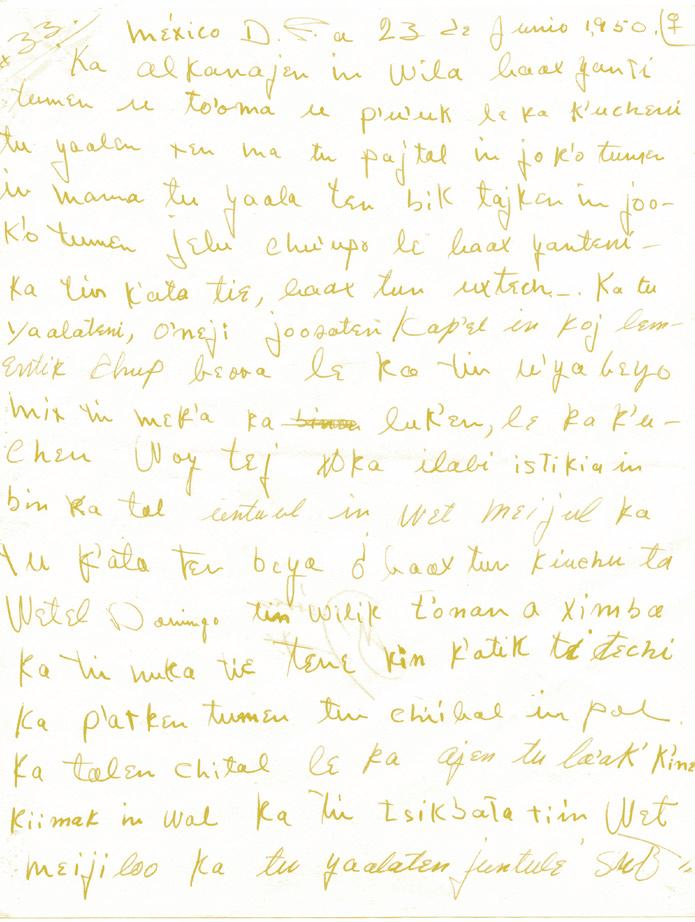 33/ México D.F. a 23 de Junio 1,950. (♀
Ka alkanajen in Wila baax yanti
tumen u to'oma u p'u'uk le ka k'ucheni
tu yaalen xen ma tu pajtal in jo k'o tumen
in mama tu yaala ten bik tajken in joo-
k'o tumen jelu chu'upo le baax yanteni-
ka tin k'ata tie, baax tun uxtech_. Ka tu
yaalateni, o'neji joosaten kap'el in koj lem-
entik chup beora le ka tin u'ya beyo
mix tin mek'a ka luk'en, le ka k'u-
chen Way tej ka ilabi istikia in
bin ka tal untuul in Wet meijul ka
tu k'ata ten beya ó baax tun kiuchu ta
Wetel Domingo tin wilik t'onan a ximba
ka tin nuka tie tene kin k'atik ti techi
ka p'atken tumen tun chi'ibal in pol.
ka talen chital le ka ajen tu laak' k'ine
kiimak in wol ka tin tsikbata tiin Wet
meijiloo ka tu yaalaten juntule'